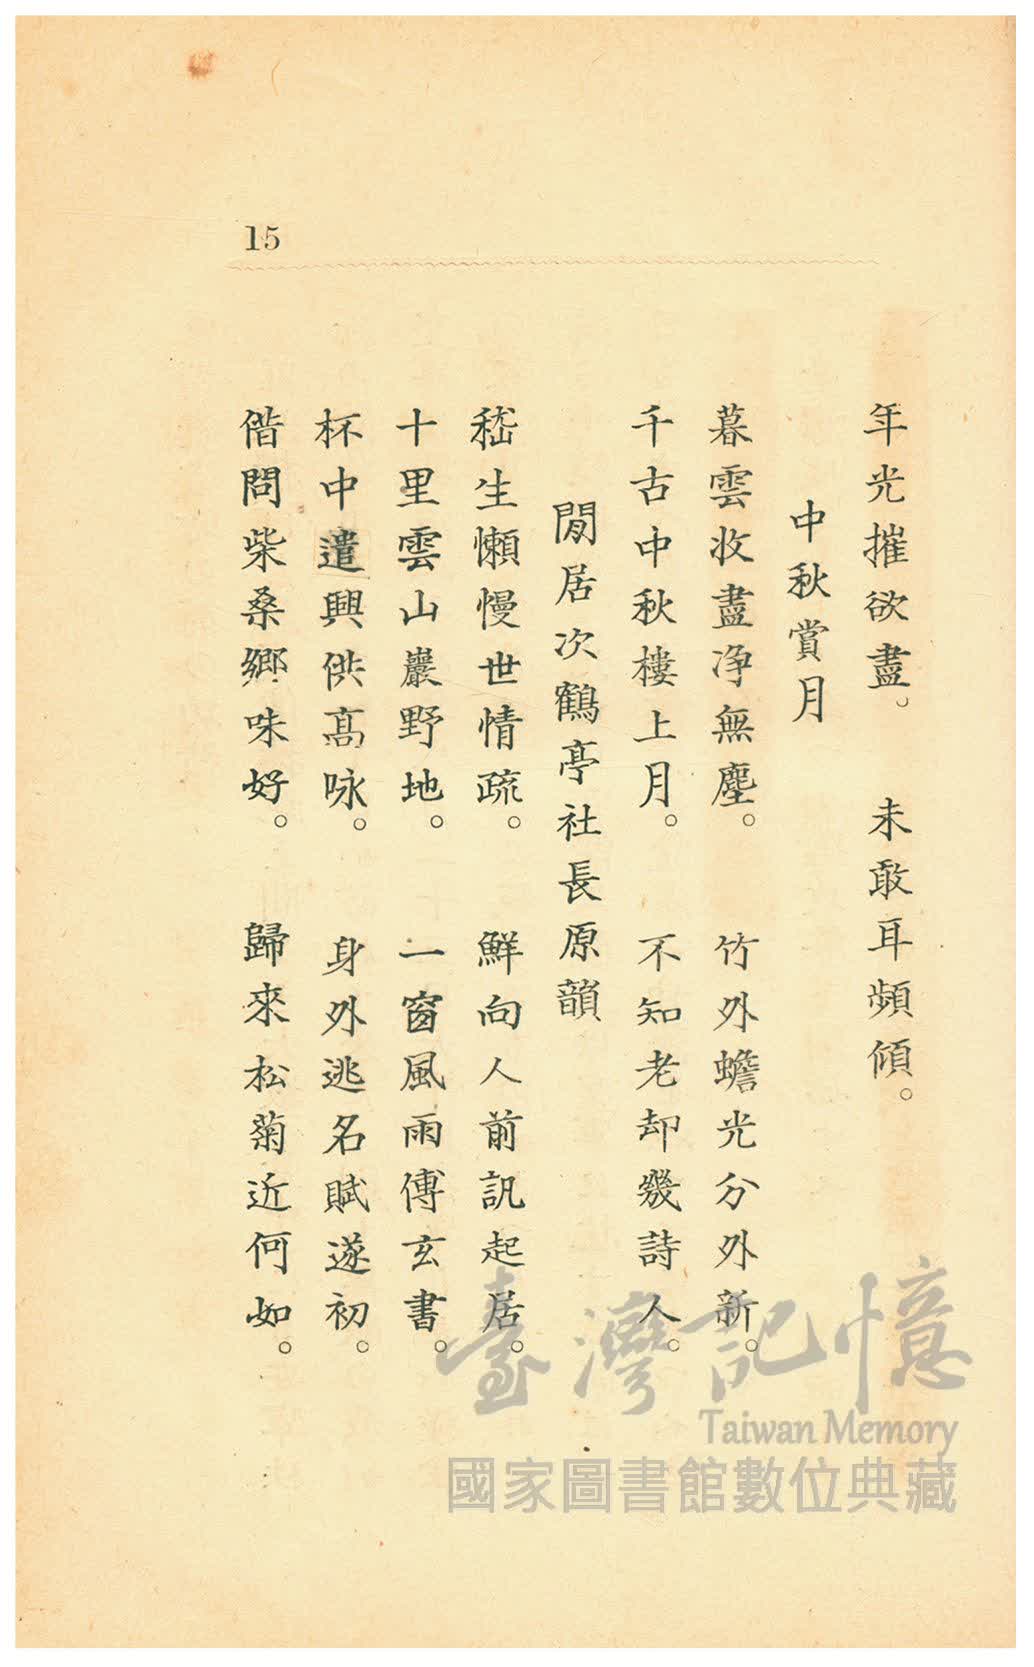 15
年光摧欲盡。 未敢耳頻傾。
中秋賞月
暮雲收盡净無塵。 竹外蟾光分外新。
千古中秋樓上月。 不知老却幾詩人。
閒居次鶴亭社長原韻
嵇生懶慢世情疏。 鮮向人前訊起居。
十里雲山巖野地。 一窗風雨傳玄書。
杯中遣興供高咏。 身外逃名賦遂初。
借問柴桑鄉味好。 歸來松菊近何如。
臺灣記憶
Taiwan Memory
國家圖書館數位典藏